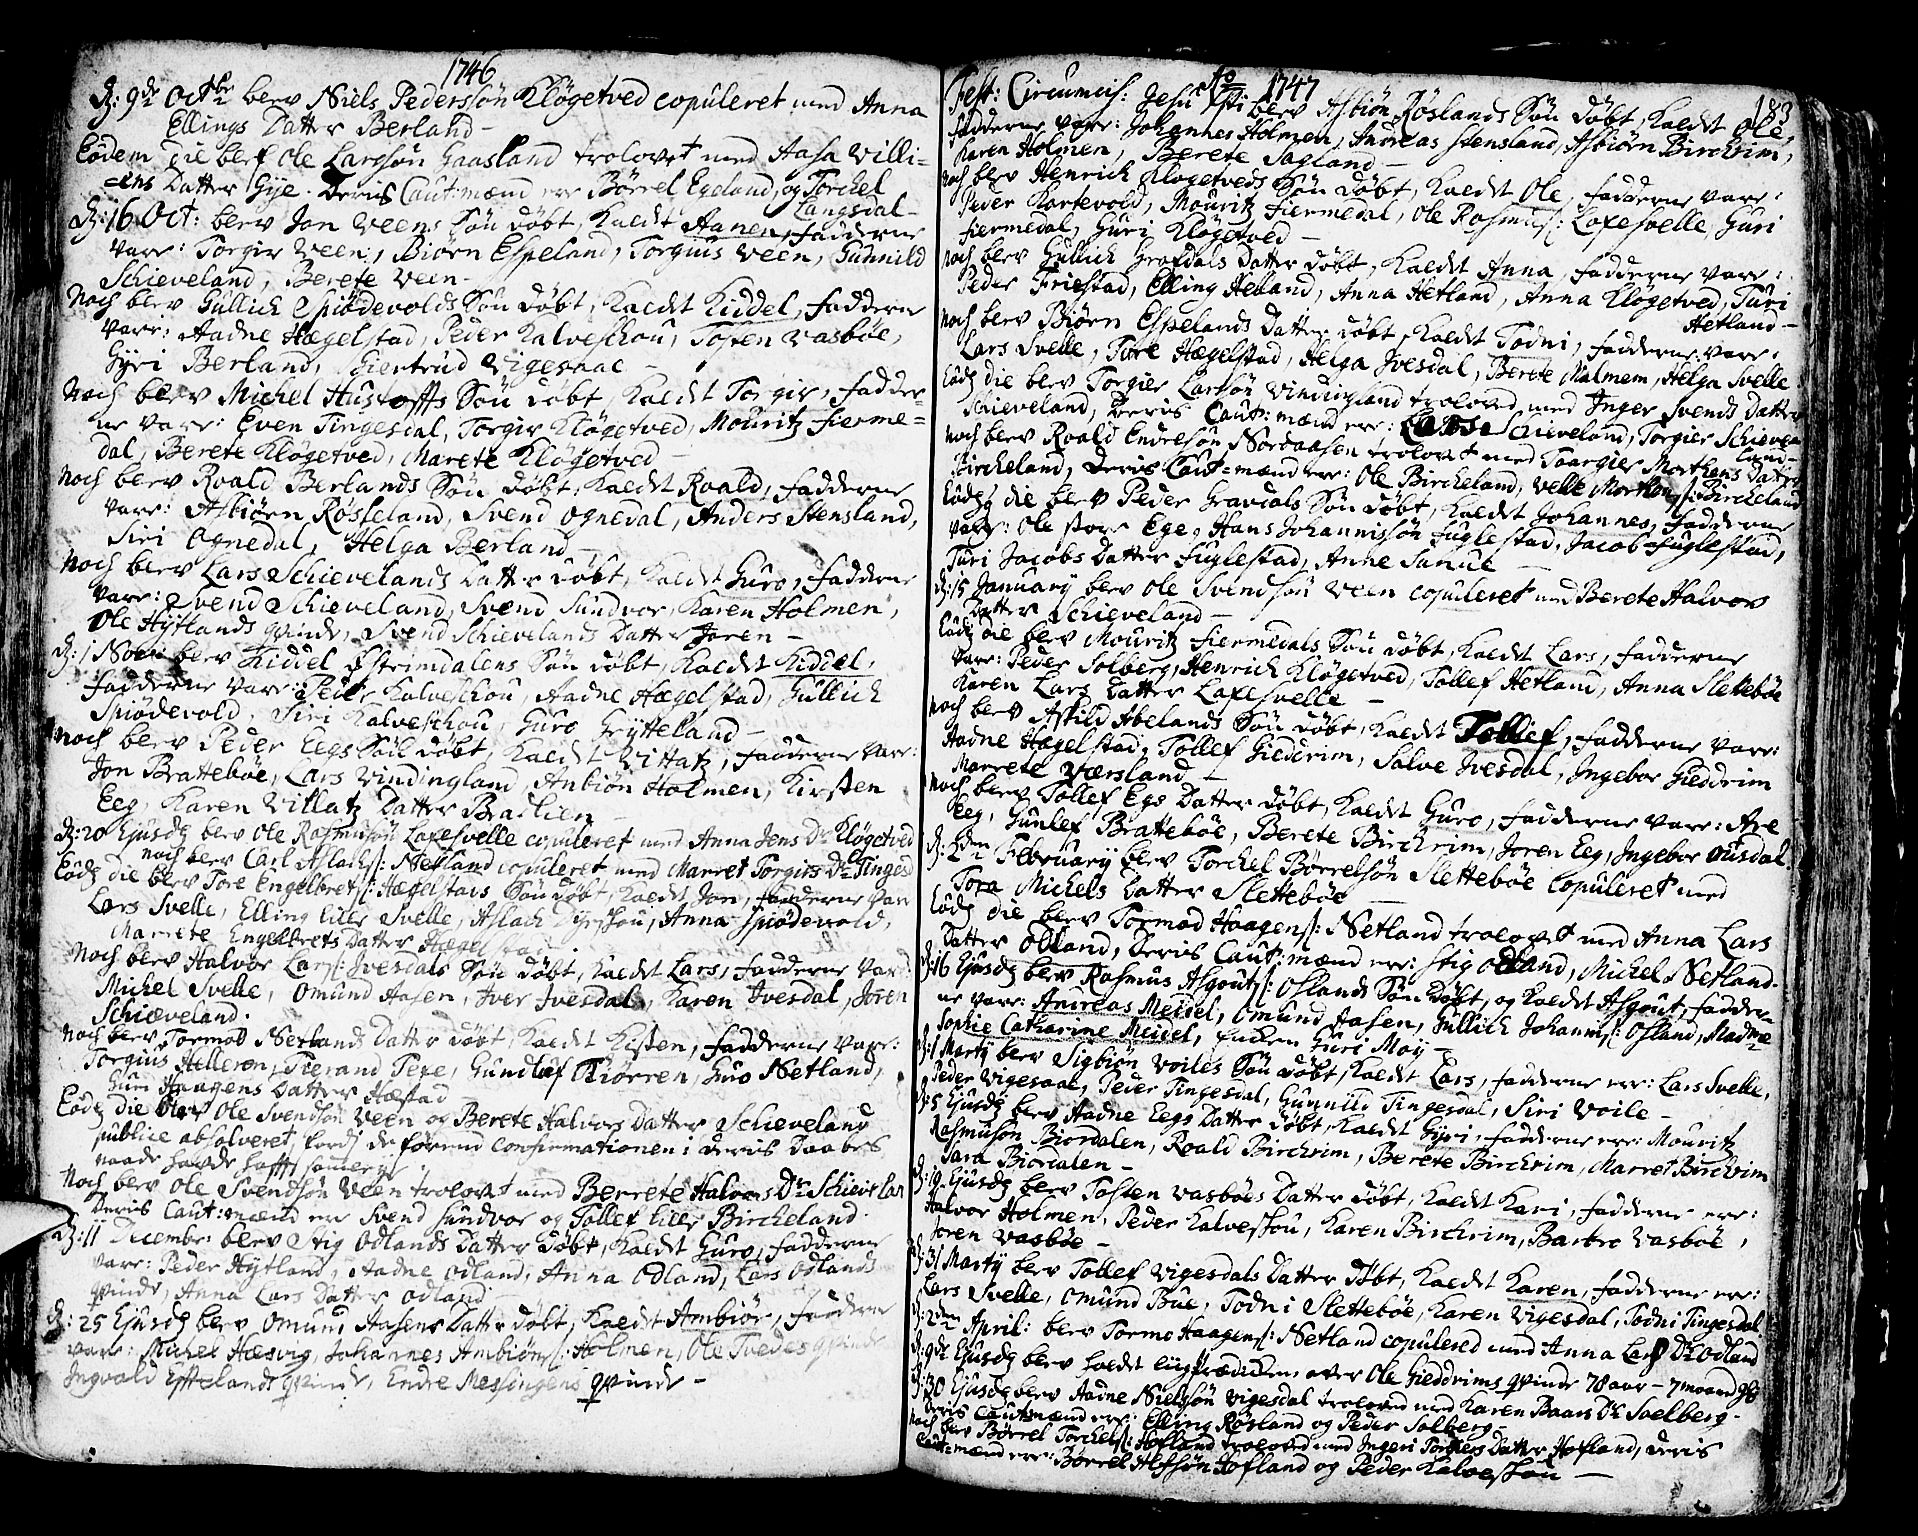 1746
d: 9de Octbr blev Niels Pedersøn Kløgetved copuleret med Anna
Ellings Datter Berland –
Eodem die blef Ole Larssøn Gaasland trolovet med Aasa Villi=
=ens Datter Gye. Deris Caut:mænd ere Børrel Egeland, og Torchel
Langsdal –
d: 16 Oct: blev Jon Veens Søn døbt, kaldt Aanen, fadderne
vare: Torgir Veen, Biørn Espeland, Torgius Veen, Gunnild
Schieveland, Berete Veen –
Noch blev Gullich Spiødevolds Søn døbt, kaldt Kiddel, fadderne
vare: Aadne Hægelstad, Peder Kalveschou, Tosten Vasbøe,
Gyri Berland, Giertrud Vigesaae –
Noch blev Michel Hustofts Søn døbt, kaldt Torgir, fadder=
ne vare: Even Tingesdal, Torgir Kløgetved, Mouritz Fierme=
dal, Berete Kløgetved, Marete Kløgetved –
Noch blev Roald Berlands Søn døbt, kaldt Roald, fadderne
vare: Asbiørn Røsseland, Svend Ognedal, Anders Stensland,
Siri Ognedal, Helga Berland –
Noch blev Lars Schievelands Datter døbt, kaldt Guro, fadderne
vare: Svend Schieveland, Svend Sundvor, Karen Holmen,
Ole Hÿtlands qvinde, Svend Schievelands Datter Joren –
d: 1 Nov: blev Kiddel Østrimdalens Søn døbt, kaldt Kiddel,
fadderne vare: Peder Kalveschou, Aadne Hægelstad, Gullich
Spiødevold, Siri Kalveschou, Guro Grÿtteland –
Noch blev Peder Eegs Søn døbt, kaldt Vittatz, fadderne vare:
Jon Brattebøe, Lars Vindingland, Anbiøn Holmen, Kirsten
Eeg, Karen Villatz Datter Bradlien –
d: 20 Ejusdg blev Ole Rasmusøn Laxesvelle copuleret med Anna Jens Dr Kløgetved
noch blev Carl Aslachs: Netland copuleret med Marret Torgirs Dr Tingesd
Eodg die blev Tore Engelbrets: Hægelstads Søn døbt, kaldt Jon, fadderne var
Lars Svelle, Elling lille Svelle, Aslach Dyrskou, Anna Spiødevold,
Marrete Engelbrets Datter Hægelstad
Noch blev Halvor Lars: Ivesdals Søn døbt, kaldt Lars, fadderne var:
Michel Svelle, Omund Aasen, Iver Ivesdal, Karen Ivesdal, Joren
Schiæveland.
Noch blev Tormod Netlands Datter døbt, kaldt Kisten, fadderne vare:
Torgius Helleren, Tierand Pexe, Gundlef Kiørren, Guro Netland,
Guri Haagens Datter Hæstad
Eodg die blev Ole Svendsøn Veen og Berete Halvors Datter Schieveland
publice absolveret, fordj de førend confirmationen i deris Daabes
naade havde hafft sammerye
Noch blev Ole Svendsøn Veen trolovet med Berrete Halvors Dr Schievelan
Deris Caut:mænd ere Svend Sundvor og Tollef lille Bircheland
d: 11 December blev Stig Odlands Datter døbt, kaldt Guro, fadderne
vare: Peder Hÿtland, Aadne Odland, Anna Odland, Lars Odlands
qvinde, Anna Lars Datter Odland –
d: 25 Ejusdg blev Omund Aasens Datter døbt, kaldt Ambiør, faddrne
vare: Michel Hæsvig, Johannes Ambiørns: Holmen, Ole Tvedes qvinde
Ingvald Espelands qvinde, Endre Messingens qvinde –
Ao 1747
183
Fest: Circumcis: Jesu Xsti blev Asbiøn Røslands Søn døbt, kaldt Ole,
fadderne vare: Johannes Holmen, Andreas Stensland, Asbiørn Birchrim,
Karen Holmen, Berete Sagland –
Noch blev Henrich Kløgetveds Søn døbt, kaldt Ole, fadderne vare:
Peder Kartevold, Mouritz Fiermedal, Ole Rasmus: Laxesvelle, Guri
Fiermedal, Guri Kløgetved –
Noch blev Gullich Grafdals Datter døbt, kaldt Anna, fadderne vare:
Peder Friestad, Elling Hetland, Anna Hetland, Anna Kløgetved, Turi
Hetland –
Noch blev Biørn Espelands Datter døbt, kaldt Todni, fadderne vare:
Lars Svelle, Tore Hægelstad, Helga Ivesdal, Berete Malmem, Helga Svelle
Eodg die blev Torgier Larsøn Vindingland troloved med Inger Svends Datter
Schieveland, Deris Caut:mænd ere: Lars Schieveland, Torgier Schieve=
land –
Noch blev Roald Endresøn Nordaasen trolovet med Taargier Morthens Datter
Bircheland, Deris Caut=mænd ere: Ole Bircheland, Velle Morthens: Bircheland
Eodg die blev Peder Gravdals Søn døbt, kaldt Johannes, fadderne
vare: Ole store Ege, Hans Johannissøn Fuglestad, Jacob Fuglestad,
Turi Jacobs Datter Fuglestad, Anne Sanue –
d: 15 Januarÿ blev Ole Svendsøn Veen copuleret med Berete Halvors
Datter Schieveland –
Eodg die blev Mouritz Fiermedals Søn døbt, kaldt Lars, fadderne
vare: Peder Solberg, Henrich Kløgetved, Tollef Hetland, Anna Slettebøe
Karen Lars Datter Laxesvelle –
Noch blev Askild Abelands Søn døbt, kaldt Tollef, fadderne vare:
Aadne Hægelstad, Tollef Gieddrim, Salve Ivesdal, Ingebor Gieddrim
Marrete Værsland –
Noch blev Tollef Egs Datter døbt, kaldt Guro, fadderne vare: Are
Eeg, Gunlef Brattebøe, Berete Birchrim, Joren Eeg, Ingebor Ousdal.
d: 2den Februarÿ blev Torchel Børrelsøn Slettebøe copuleret med
Tora Michels Datter Slettebøe –
Eodg die blev Tormod Haagens: Netland trolovet med Anna Lars
Datter Odland, Deris Caut:mænd ere: Stig Odland, Michel Netland.
d: 16 Ejusdg blev Rasmus Asgouts: Oslands Søn døbt, og kaldt Asgout, fadder=
ne vare: Andreas Meidel, Omund Aasen, Gullich Johanns: Osland, Madme
Sophie Catharine Meidel, Enchen Guri Moy –
d: 1 Martÿ blev Sigbiøn Voiles Søn døbt, kaldt Lars, fadderne ere: Lars Svelle,
Peder Vigesaae, Peder Tingesdal, Gunnild Tingesdal, Siri Voile –
d: 5 Ejusdg blev Aadne Eegs Datter døbt, kaldt Gÿri, fadderne ere: Mouritz
Rasmusøn Biordalen, Roald Birchrim, Berete Birchrim, Marret Birchrim
Sara Biordalen –
d: 19 Ejusdg blev Tosten Vasbøes Datter døbt, kaldt Kari, fadderne ere:
Halvor Holmen, Peder Kalveskou, Karen Birchrim, Barbro Vasbøe,
Joren Vasbøe –
d: 31 Martÿ blev Tollef Vigesdals Datter døbt, kaldt Karen, fadderne ere:
Lars Svelle, Omund Bue, Todni Slettebøe, Karen Vigesdal, Todni Tingesdal
d: 2den April: blev Tormo Haagens: Netland copulered med Anna Lars Dr Odland
d: 9de Ejusdg blev holdt ligprædichen over Ole Gieddrims qvinde 78 aar – 7 maaned gl:
d: 30 Ejusdg blev Aadne Nielssøn Vigesdal troloved med Karen Baars Dr Svelberg –
Deris Cautmænd ere: Elling Røsland og Peder Solberg –
Noch blev Børrel Torchels: Hofland troloved med Ingeri Torgiers Datter Hofland, deris
Caut=mænd ere: Børrel Alfsøn Hofland og Peder Kalvesskou –